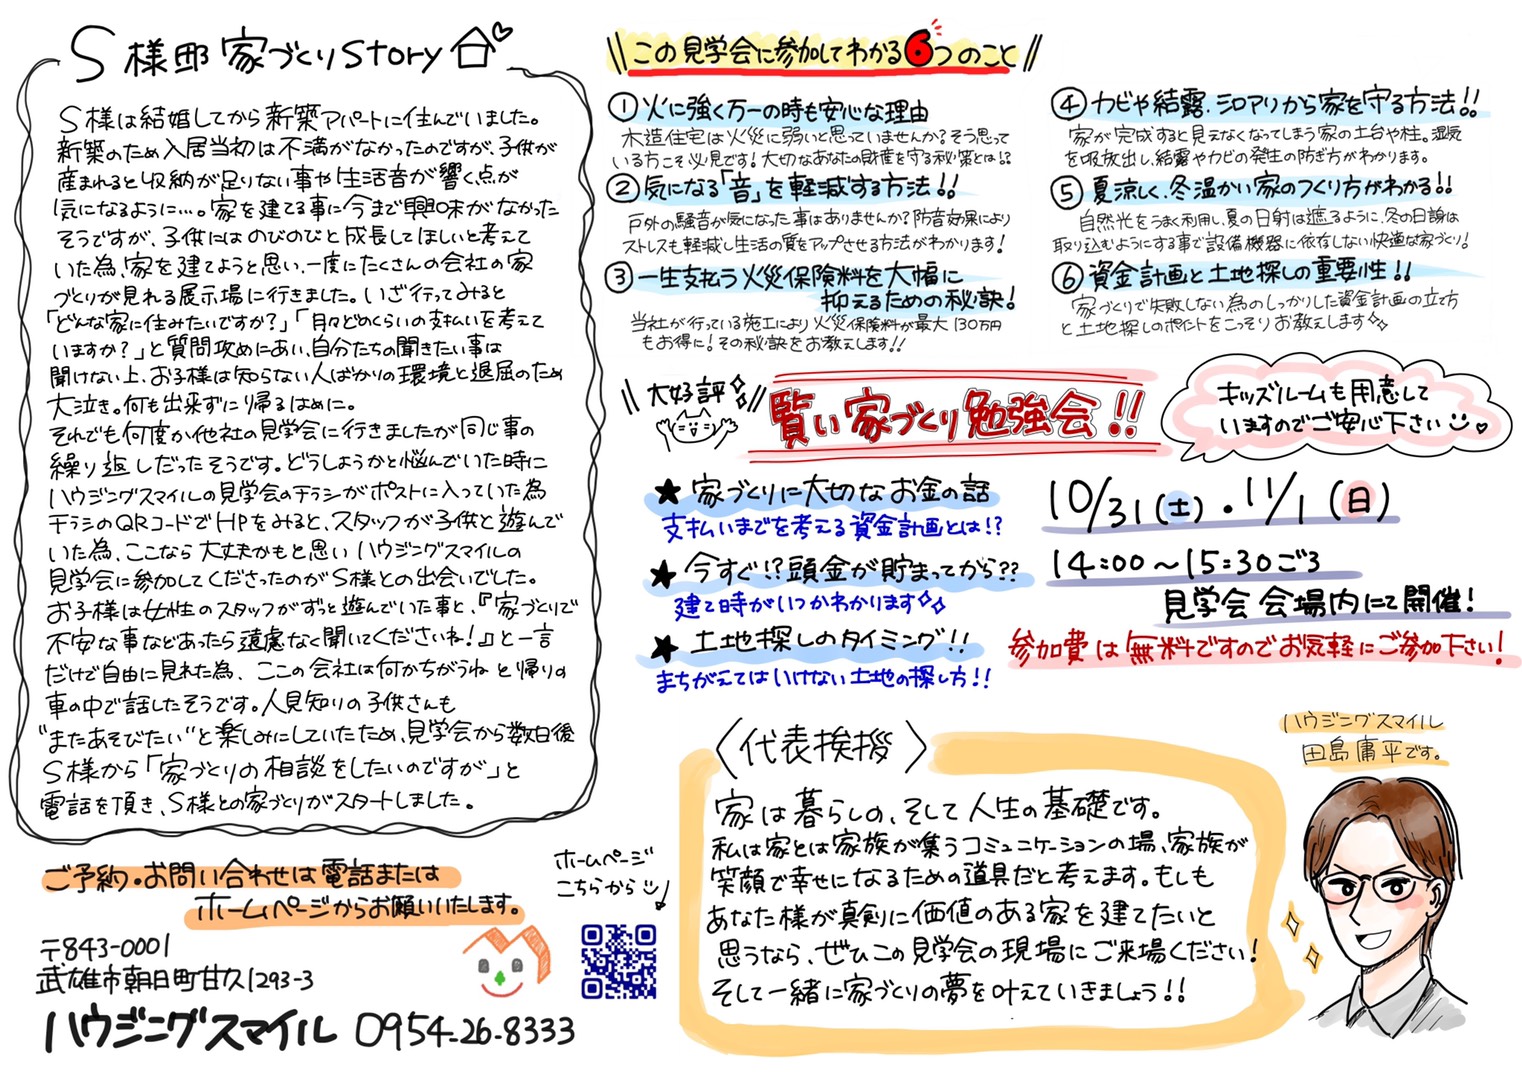 S様邸 家づくりStory
S様は結婚してから新築アパートに住んでいました。
新築のため入居当初は不満がなかったのですが、子供が
産まれると収納が足りない事や生活音が響く点が
気になるように…。家を建てる事に今まで興味がなかった
そうですが、子供にはのびのびと成長してほしいと考えて
いた為、家を建てようと思い、一度にたくさんの会社の家
づくりが見れる展示場に行きました。いざ行ってみると
「どんな家に住みたいですか?」「月々どのくらいの支払いを考えて
いますか?」と質問攻めにあい、自分たちの聞きたい事は
聞けない上、お子様は知らない人ばかりの環境と退屈のため
大泣き。何も出来ずに帰るはめに。
それでも何度か他社の見学会に行きましたが同じ事の
繰り返しだったそうです。どうしようかと悩んでいた時に
ハウジングスマイルの見学会のチラシがポストに入っていた為
チラシのQRコードでHPをみると、スタッフが子供と遊んで
いた為、ここなら大丈夫かもと思いハウジングスマイルの
見学会に参加してくださったのがS様との出会いでした。
お子様は女性のスタッフがずっと遊んでいた事と、『家づくりで
不安な事などあったら遠慮なく聞いてくださいね!』と一言
だけで自由に見れた為、ここの会社は何かちがうねと帰りの
車の中で話したそうです。人見知りの子供さんも
"またあそびたい"と楽しみにしていたため、見学会から数日後
S様から「家づくりの相談をしたいのですが」と
電話を頂き、S様との家づくりがスタートしました。
ご予約・お問い合わせは電話または
ホームページからお願いいたします。
ホームページ
こちらから
〒843-0001
武雄市朝日町甘久1293-3
ハウジングスマイル 0954-26-8333
この見学会に参加してわかる6つのこと
① 火に強く万一の時も安心な理由
木造住宅は火災に弱いと思っていませんか?そう思って
いる方こそ必見です!大切なあなたの財産を守る秘策とは!?
② 気になる「音」を軽減する方法!!
戸外の騒音が気になった事はありませんか?防音効果により
ストレスも軽減し生活の質をアップさせる方法がわかります!
③ 一生支払う火災保険料を大幅に
抑えるための秘訣!
当社が行っている施工により火災保険料が最大130万円
もお得に!その秘訣をお教えします!!
④ カビや結露、シロアリから家を守る方法!!
家が完成すると見えなくなってしまう家の土台や柱。湿気
を吸放出し、結露やカビの発生の防ぎ方がわかります。
⑤ 夏涼しく、冬温かい家のつくり方がわかる!!
自然光をうまく利用し、夏の日射は遮るように、冬の日詥は
取り込むようにする事で設備機器に依存しない快適な家づくり!
⑥ 資金計画と土地探しの重要性!!
家づくりで失敗しない為のしっかりした資金計画の立て方
と土地探しのポイントをこっそりお教えします
大好評
賢い家づくり勉強会!!
キッズルームも用意して
いますのでご安心下さい
★ 家づくりに大切なお金の話
支払いまでを考える資金計画とは!?
★ 今すぐ!?頭金が貯まってから??
建て時がいつかわかります
★ 土地探しのタイミング!!
まちがえてはいけない土地の探し方!!
10/31(土)・11/1(日)
14:00~15:30ごろ
見学会会場内にて開催!
参加費は無料ですのでお気軽にご参加下さい!
〈代表挨拶〉
家は暮らしの、そして人生の基礎です。
私は家とは家族が集うコミュニケーションの場、家族が
笑顔で幸せになるための道具だと考えます。もしも
あなた様が真剣に価値のある家を建てたいと
思うなら、ぜひこの見学会の現場にご来場ください!
そして一緒に家づくりの夢を叶えていきましょう!!
ハウジングスマイル
田島庸平です。